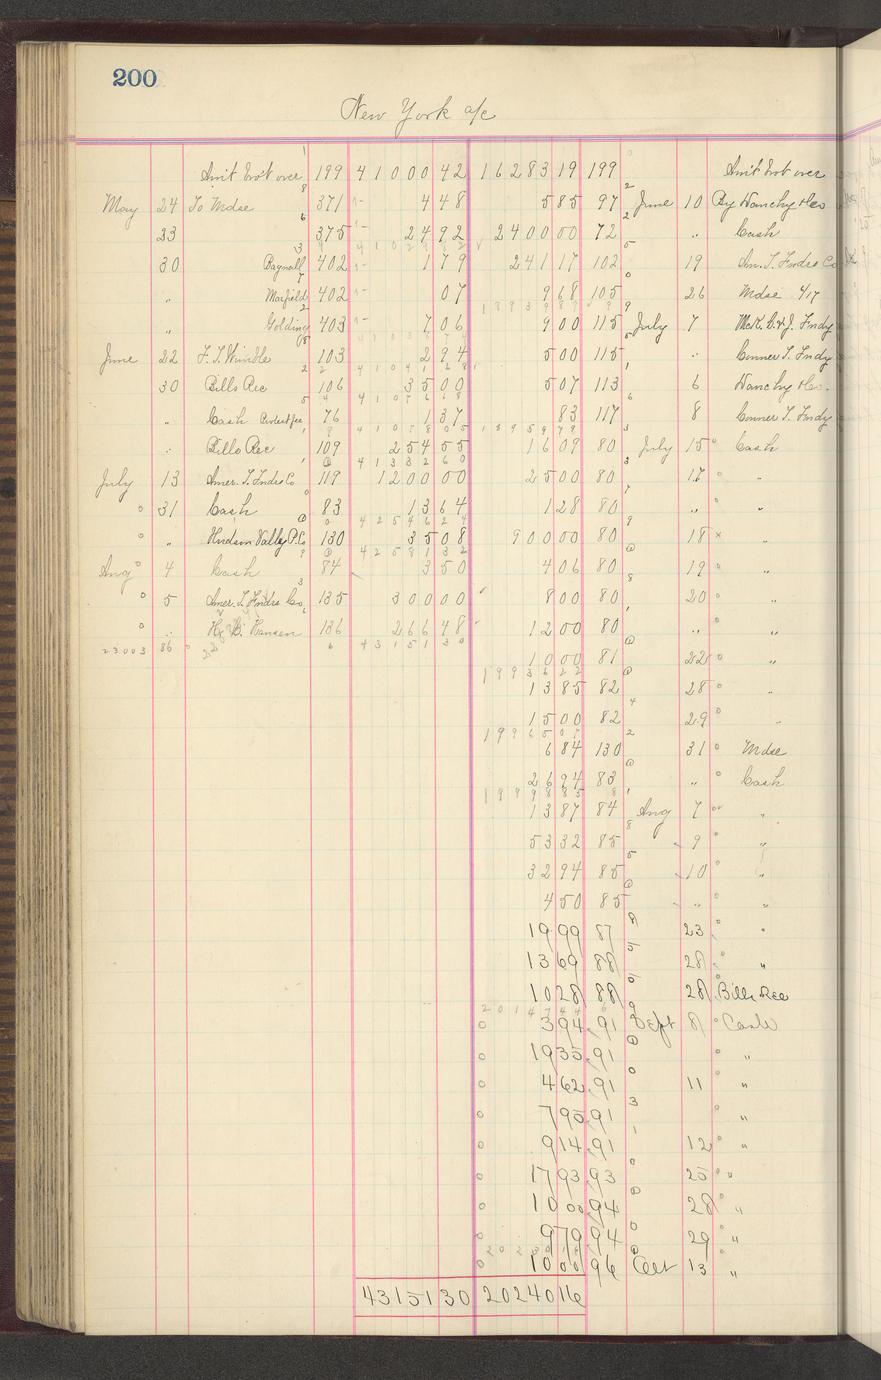 200
New York a/c
Am't bro't over 199 41000 42 16283 19 199 Am't bro't over
May 24 To Mdse 371 4 48 5 85 97 June 10 By Hanchy & Co
23 375 24 92 2400 00 72 " Cash
30 Bagnall 402 1 79 241 17 102 19 Am. T. Fndrs Co
" Maxfield 402 07 9 68 105 26 Mdse 4/17
" Golding 403 7 06 9 00 115 July 7
June 22 F. T. Wimble 103 2 94 5 00 115 " Conner T. Fndy
30 Bills Rec 106 35 00 5 07 113 6 Hanchy & Co.
" Cash Protest fee 76 1 37 83 117 8 Conner T. Fndy
" Bills Rec 109 254 55 16 09 80 July 15 Cash
July 13 Amer. T. Fndrs Co 119 1200 00 25 00 80 17 "
31 Cash 83 13 64 1 28 80 " "
" Hudson Vally P. Co 130 35 08 900 00 80 18 "
Aug 4 Cash 84 3 50 4 06 80 19 "
5 Amer. T. Fndrs Co. 135 300 00 8 00 80 20 "
" H. B. Hansen 136 266 48 12 00 80 " "
23003 86 4315130
10 00 81 22 "
13 85 82 28 "
15 00 82 29 "
6 84 130 31 Mdse
26 94 83 " Cash
13 87 84 Aug 7 "
53 32 85 9 "
32 94 85 10 "
4 50 85 " "
19 99 87 23 "
13 69 88 28 "
10 28 88 28 Bills Rec
3 94 91 Sept 8 Cash
19 35 91 "
4 62 91 11 "
7 95 91 "
9 14 91 12 "
17 93 93 25 "
10 00 94 28 "
9 79 94 29 "
10 00 96 Oct 13 "
43151 30 20240 16